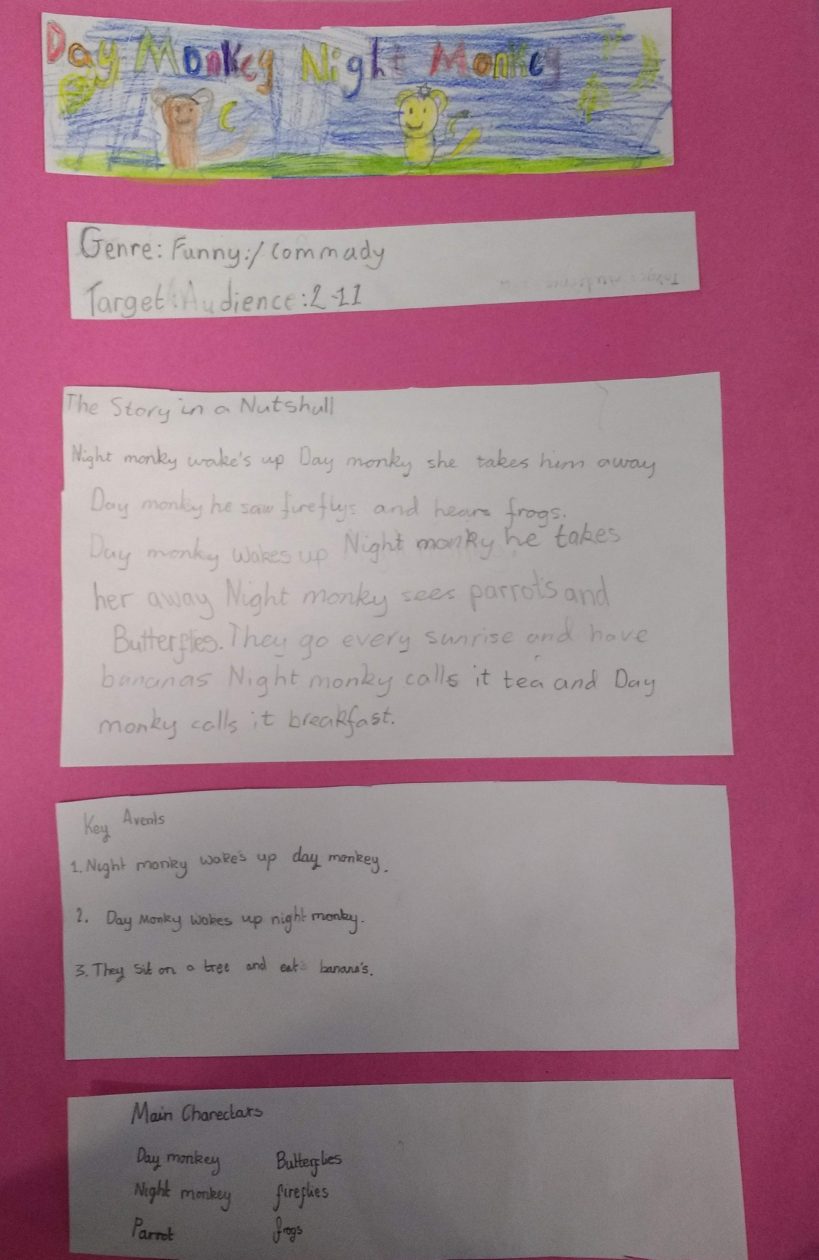 Day Monkey Night Monkey
Genre: Funny:/Commady
Target Audience: 2-11
The Story in a Nutshull
Night monky wake's up Day monky she takes him away
Day monky he saw fireflys and hears frogs.
Day monky wakes up Night monky he takes
her away Night monky sees parrots and
Butterflies. They go every sunrise and have
bananas Night monky calls it tea and Day
monky calls it breakfast.
Key Avents
1. Night monky wake's up day monkey.
2. Day Monky wakes up night monky.
3. They sit on a tree and eat banana's.
Main Charectars
Day monkey Butterflies
Night monkey fireflies
Parrot frogs